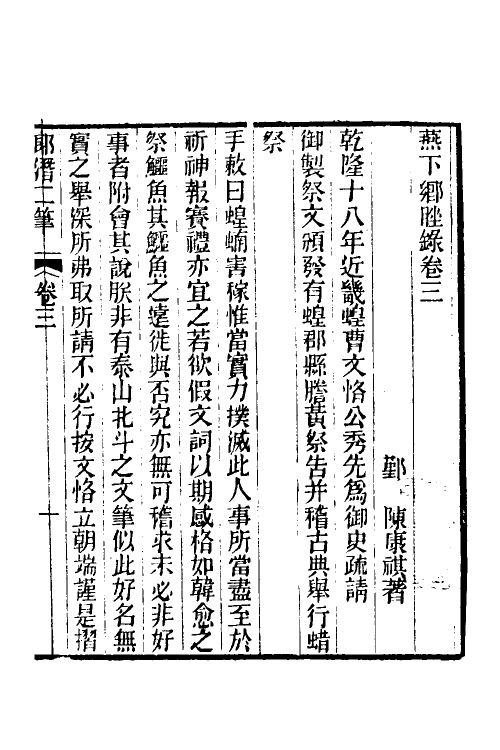 燕下鄉脞錄卷三
鄞　陳康祺著
乾隆十八年近畿蝗曹文恪公秀先爲御史疏請
御製祭文頒發有蝗郡縣謄黃祭告并稽古典舉行蜡
祭
手敕曰蝗蝻害稼惟當實力撲滅此人事所當盡至於
祈神報賽禮亦宜之若欲假文詞以期感格如韓愈之
祭鱷魚其鱷魚之遠徙與否究亦無可稽求未必非好
事者附會其說朕非有泰山北斗之文筆似此好名無
實之舉深所弗取所請不必行按文恪立朝端謹是摺
郎潛二筆　卷三　十